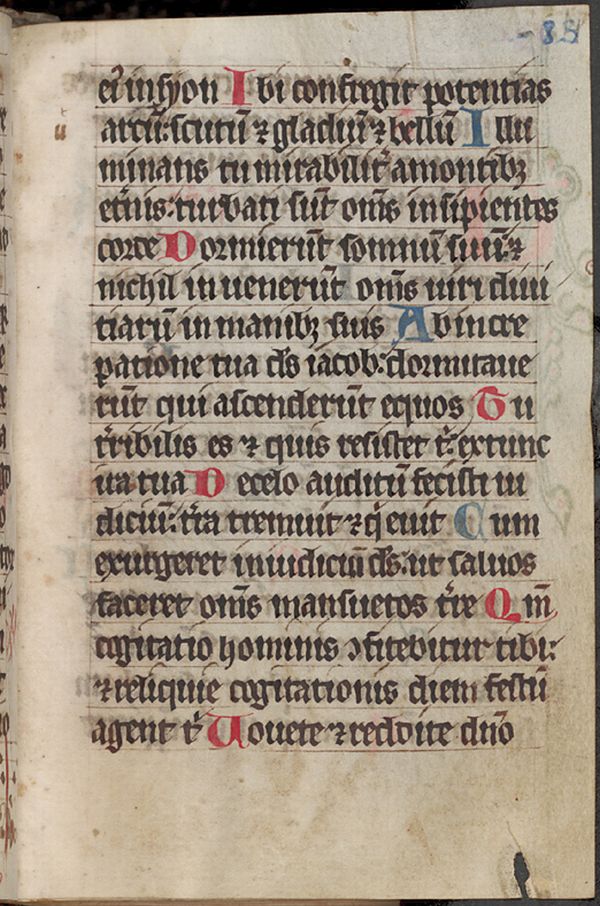 88
ei᷒ in syon Ibi confregit potentias
arcuū: scutū ⁊ gladiū ⁊ bellū Illu
minans tu mirabilit᷒ a montibꝫ
et᷒nis: turbati sūt om̄s insipientes
corde Dormierūt somnū suū: ⁊
nichil inuenerūt om̄s uiri diui
tiarū in manibꝫ suis Ab incre
patione tua ds̄ iacob: dormitaue
rūt qui ascenderūt equos Tu
t᷒ribilis es ⁊ quis resistet t᷒: ex tunc
ira tua De celo auditū fecisti iu
diciū: t᷒ra tremuit ⁊ q̄euit Cum
exurgeret in iudiciū ds̄: ut saluos
faceret om̄s mansuetos t᷒re Qm̄
cogitatio hominis ꝯfitebitur tibi:
⁊ reliquie cogitationis diem festū
agent t᷒ Uouete ⁊ reddite dn̄o